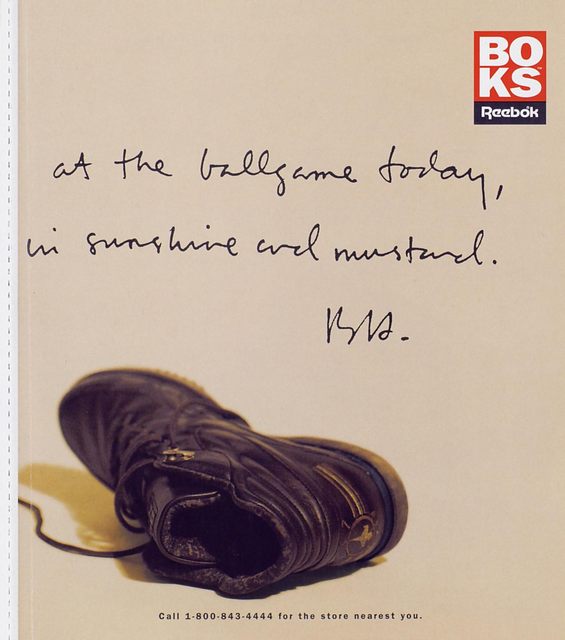 BO
KS
Reebok
at the ballgame today,
in sunshine and mustard.
Call 1-800-843-4444 for the store nearest you.